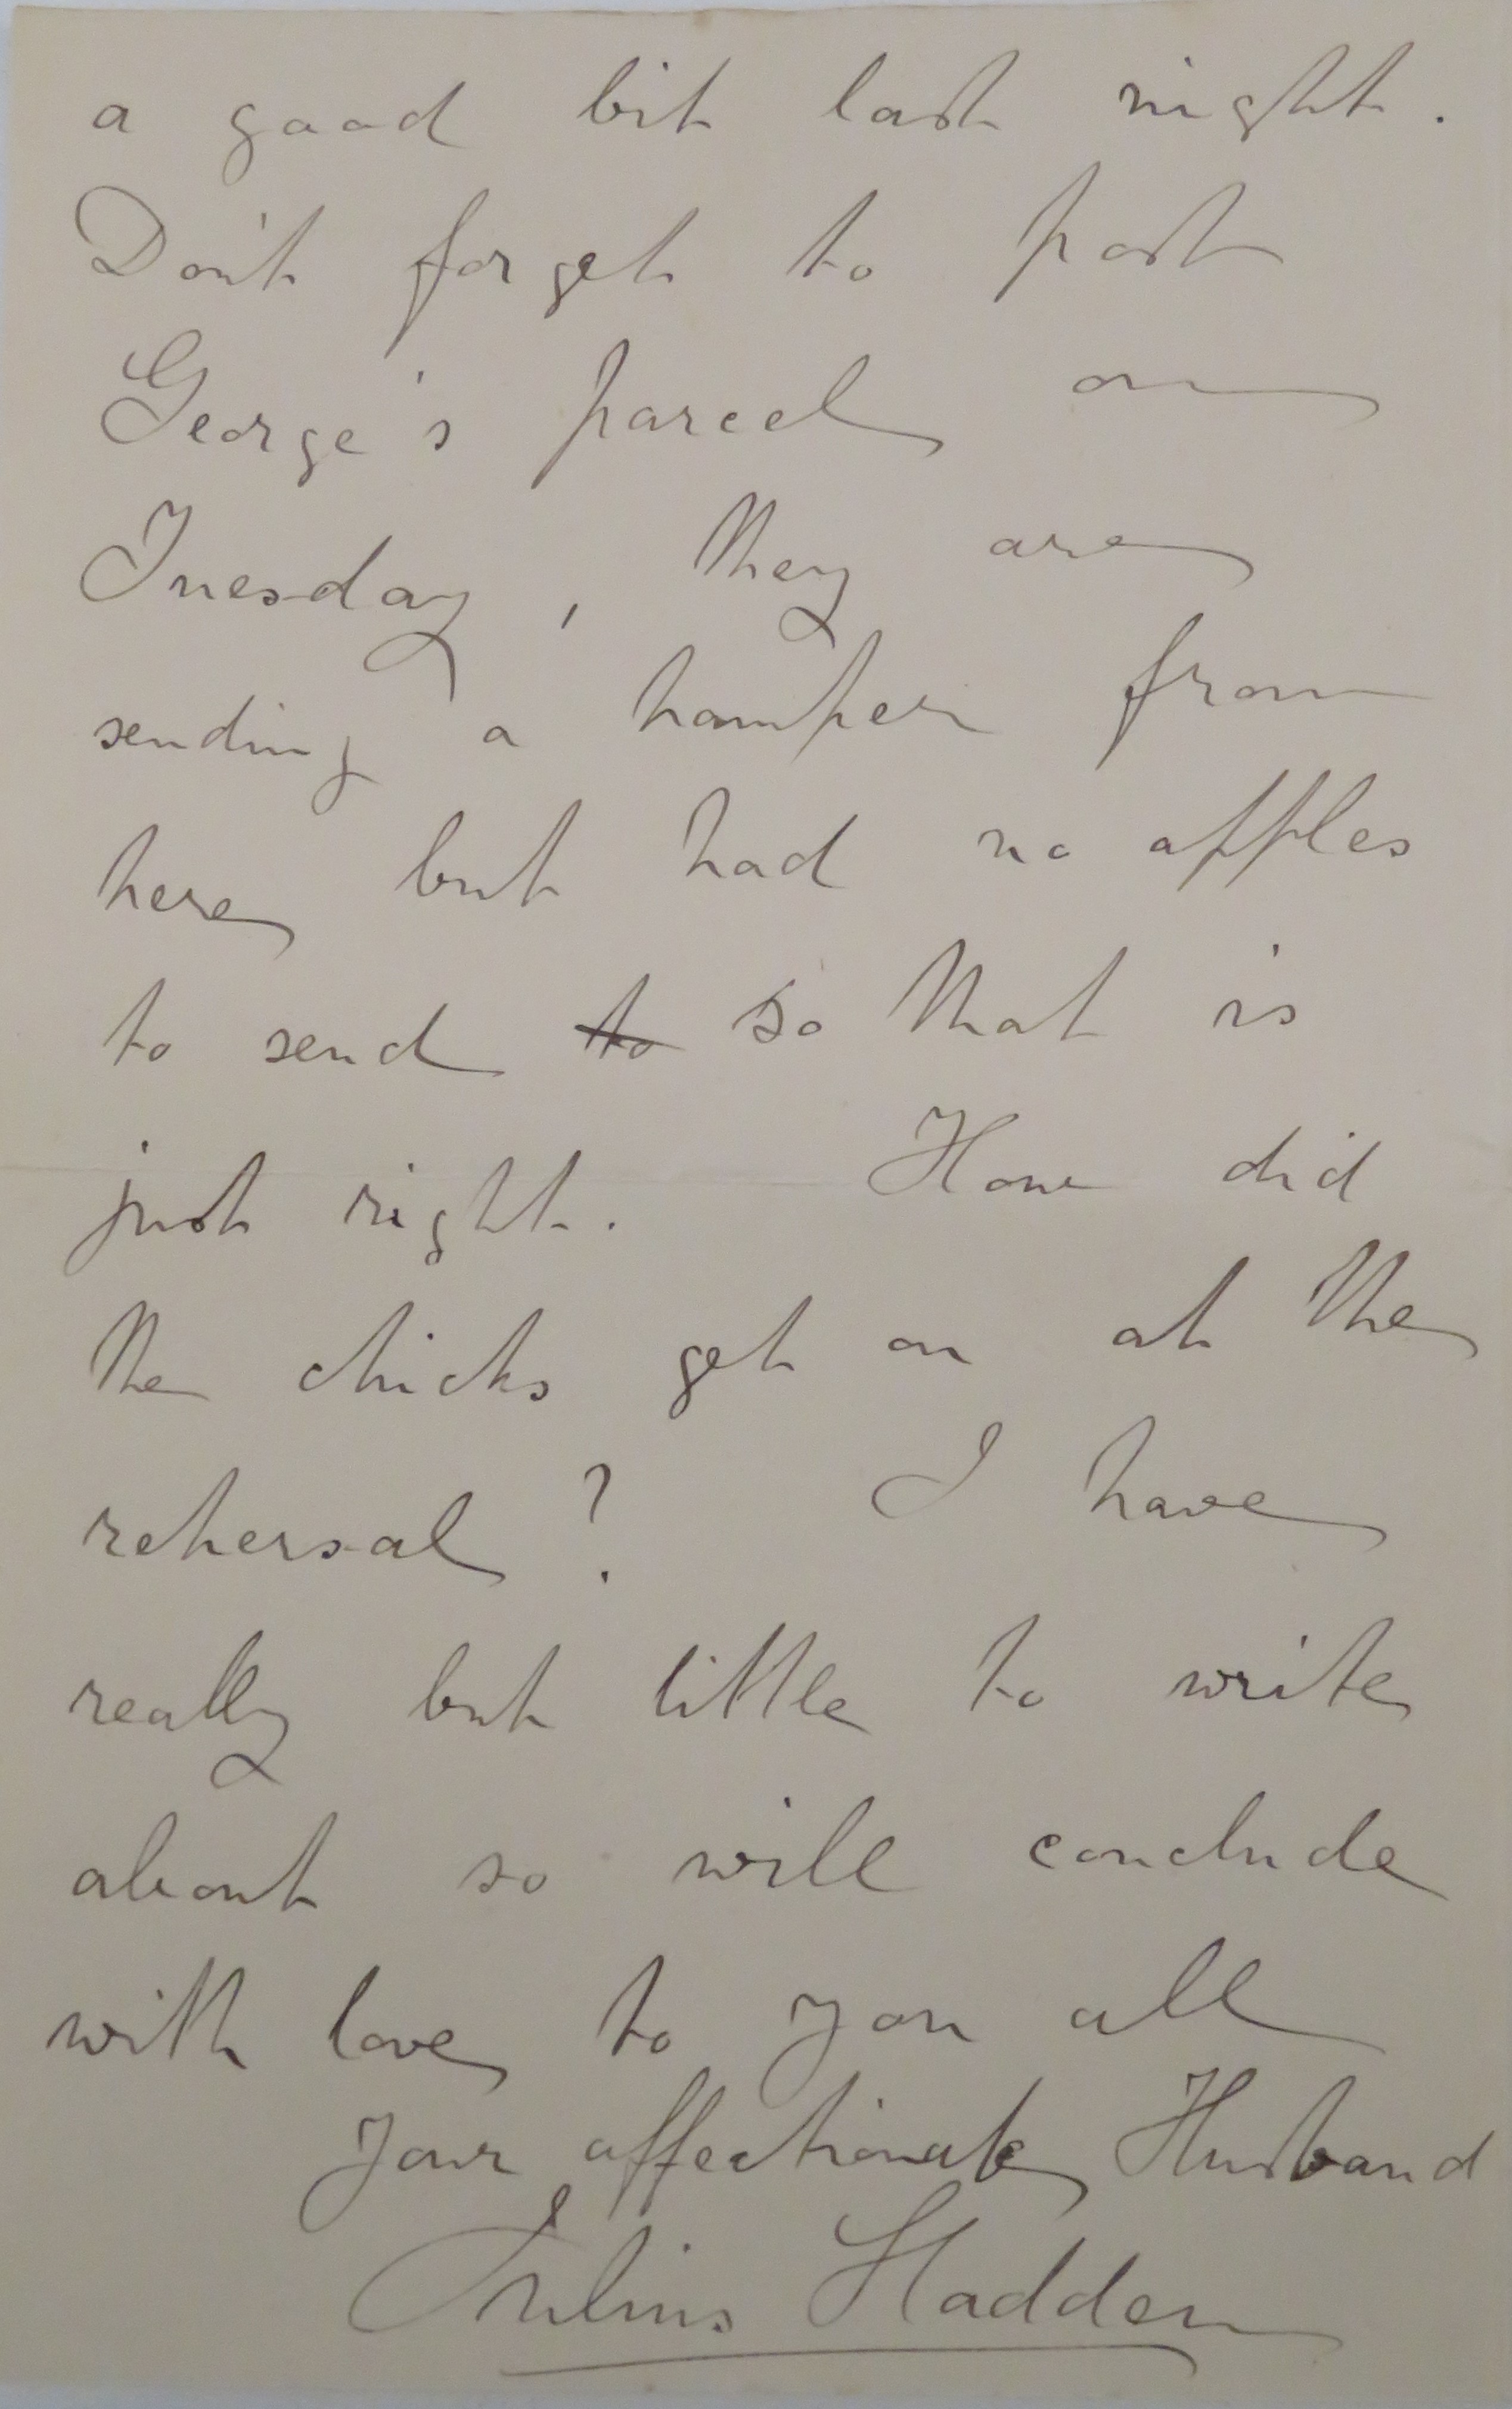 a good bit last night.
Don't forget to post
George's parcel on
Tuesday, they are
sending a hamper from
here but had no apples
to send to so that is
just right. How did
the chicks get on at the
rehersal? I have
really but little to write
about so will conclude
with love to you all
Your affectionate Husband
Julius Hadden